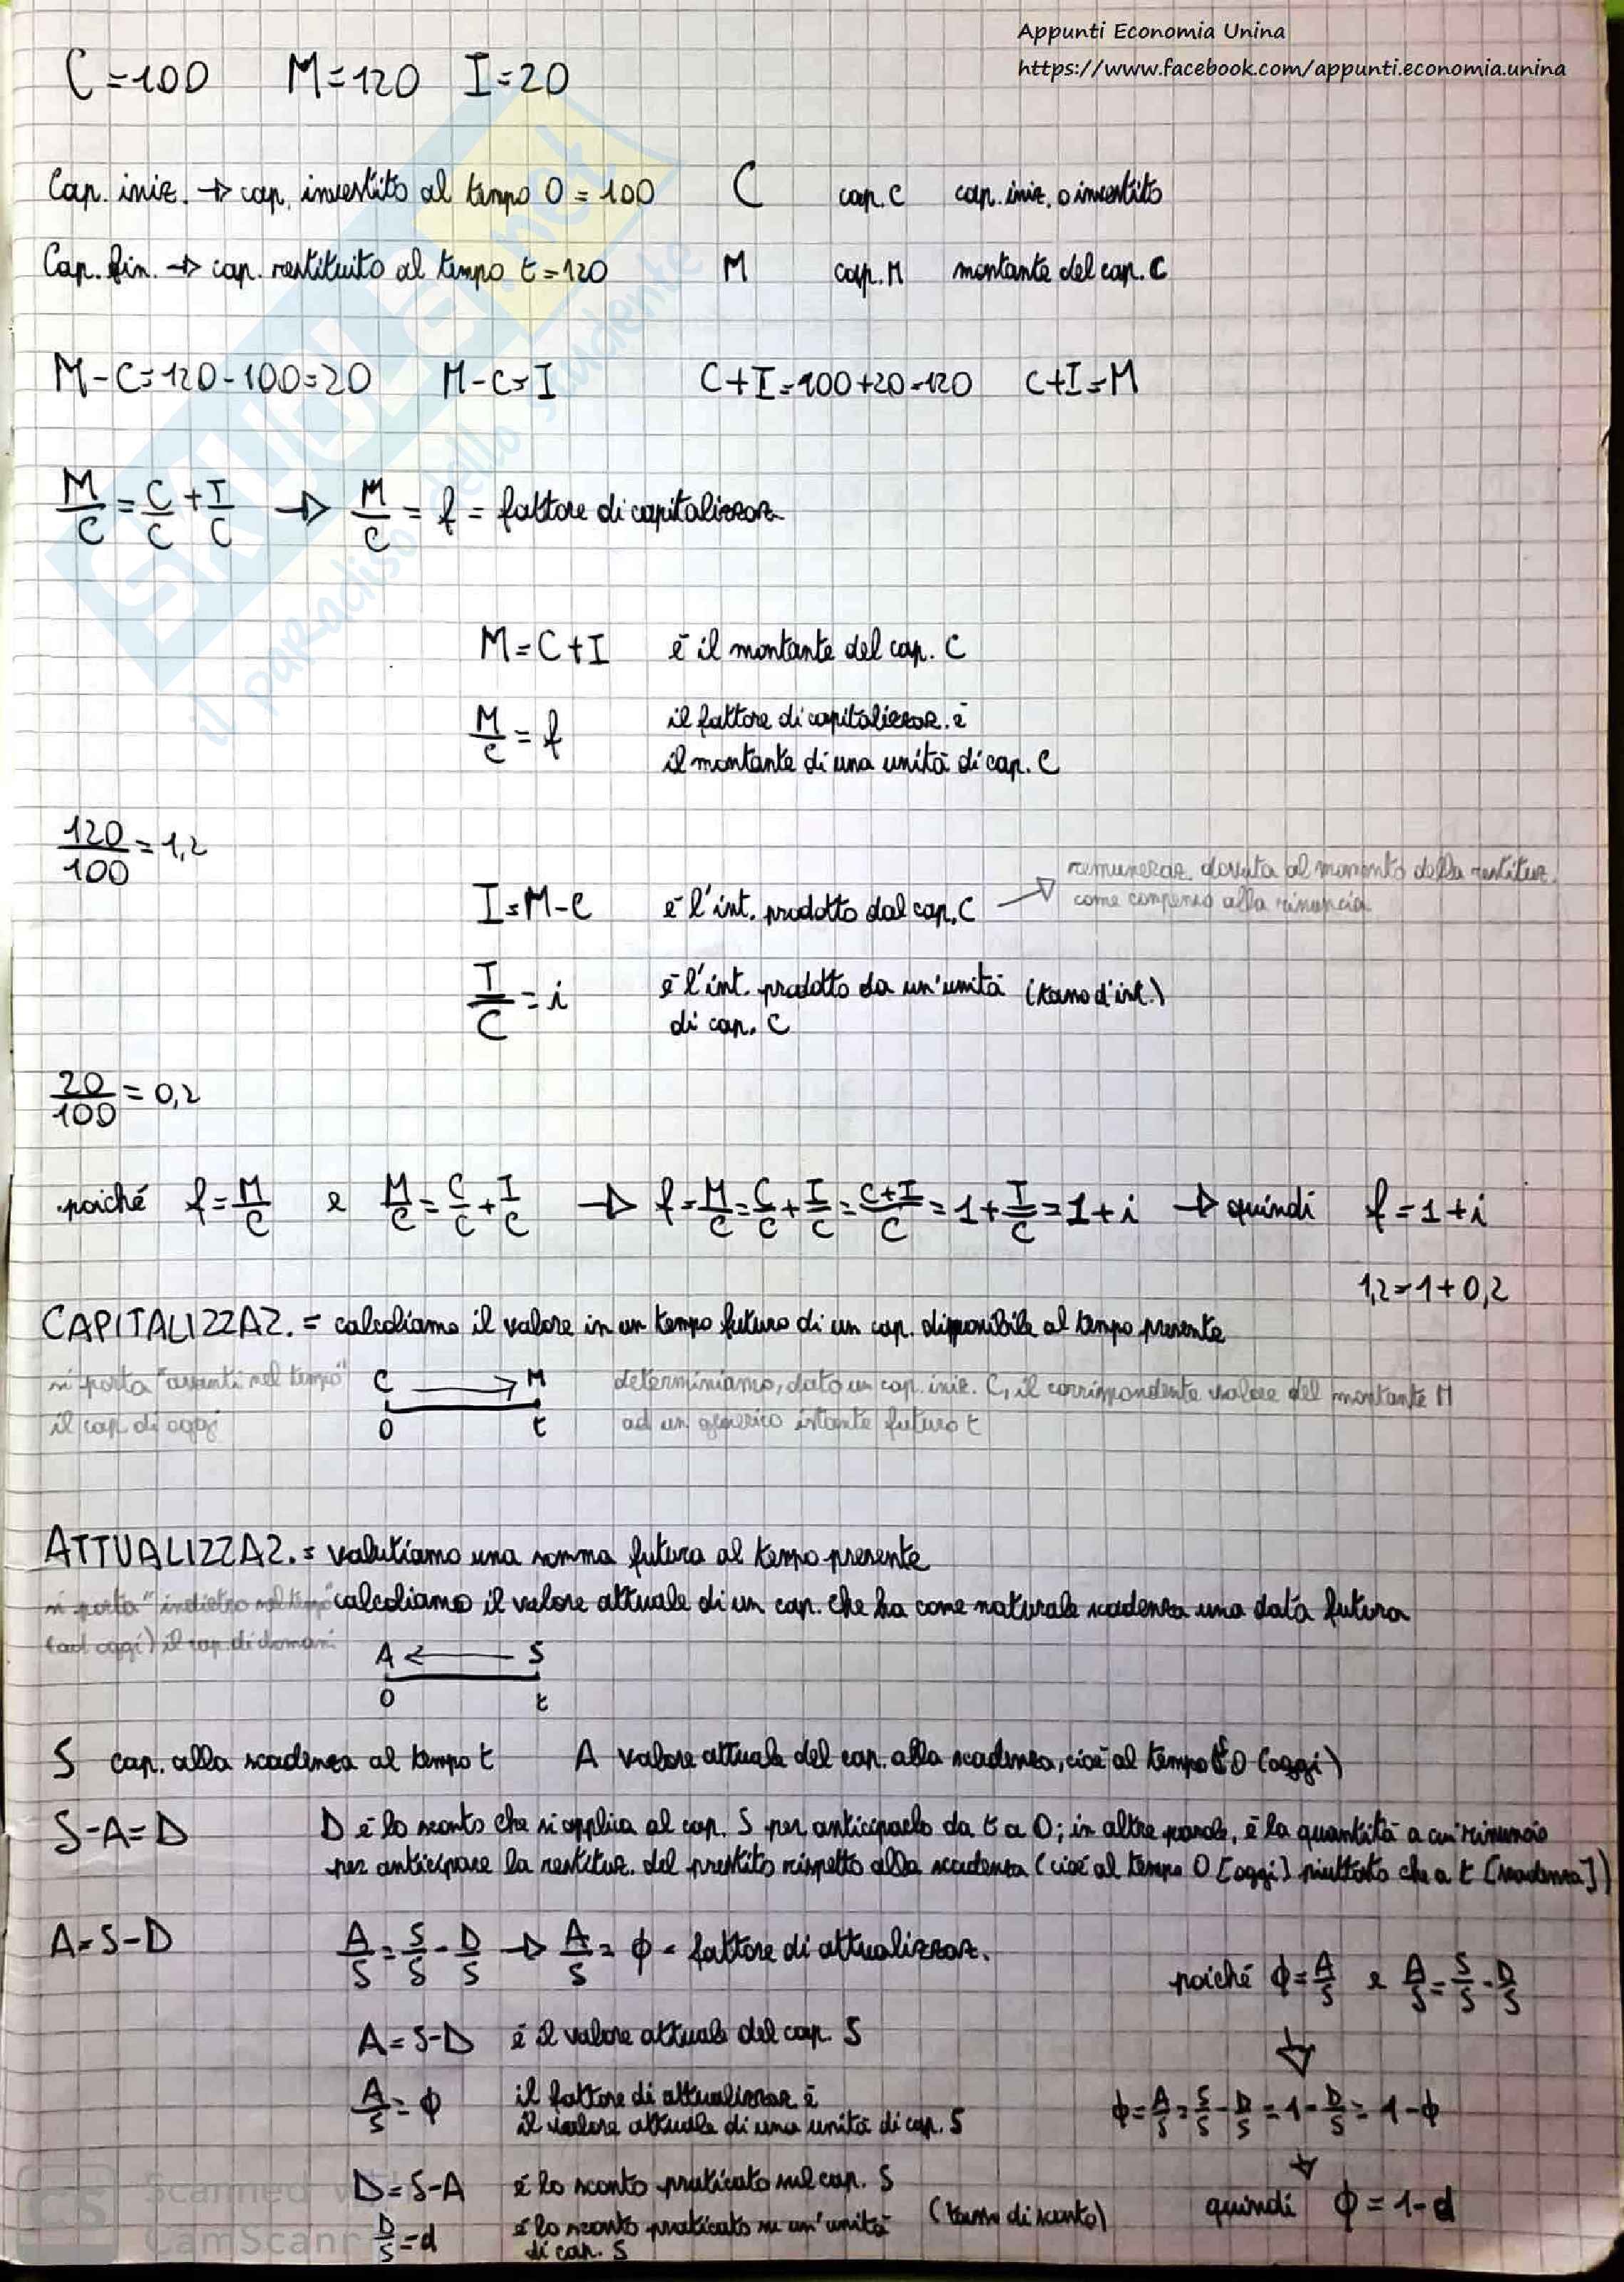 Appunti Economia Unina
https://www.facebook.com/appunti.economia.unina
C = 100 M = 120 I = 20
Cap. iniz. → cap. investito al tempo 0 = 100 C cap. C cap. iniz. o investito
Cap. fin. → cap. restituito al tempo t = 120 M cap. M montante del cap. C
M - C = 120 - 100 = 20 M - C = I C + I = 100 + 20 = 120 C + I = M
M/C = C/C + I/C → M/C = f = fattore di capitalizzaz.
M = C + I è il montante del cap. C
M/C = f il fattore di capitalizzaz. è
il montante di una unità di cap. C
120/100 = 1,2
remuneraz. dovuta al momento della restituz.
I = M - C è l'int. prodotto dal cap. C → come compenso alla rinuncia
I/C = i è l'int. prodotto da un'unità (tasso d'int.)
di cap. C
20/100 = 0,2
poiché f = M/C e M/C = C/C + I/C → f = M/C = C/C + I/C = C+I/C = 1 + I/C = 1 + i → quindi f = 1 + i
1,2 = 1 + 0,2
CAPITALIZZAZ. = calcoliamo il valore in un tempo futuro di un cap. disponibile al tempo presente
si porta "avanti nel tempo" C → M determiniamo, dato un cap. iniz. C, il corrispondente valore del montante M
il cap. di oggi 0 t ad un generico istante futuro t
ATTUALIZZAZ. = valutiamo una somma futura al tempo presente
si porta "indietro nel tempo" calcoliamo il valore attuale di un cap. che ha come naturale scadenza una data futura
(ad oggi) il cap. di domani
A ← S
0 t
S cap. alla scadenza al tempo t A valore attuale del cap. alla scadenza, cioè al tempo 0 (oggi)
S - A = D D è lo sconto che si applica al cap. S per anticiparlo da t a 0; in altre parole, è la quantità a cui rinuncio
per anticipare la restituz. del prestito rispetto alla scadenza (cioè al tempo 0 [oggi] piuttosto che a t [scadenza])
A = S - D A/S = S/S - D/S → A/S = φ = fattore di attualizzaz.
poiché φ = A/S e A/S = S/S - D/S
A = S - D è il valore attuale del cap. S
A/S = φ il fattore di attualizzaz. è
il valore attuale di una unità di cap. S
φ = A/S = S/S - D/S = 1 - D/S = 1 - φ
D = S - A è lo sconto praticato sul cap. S
D/S = d è lo sconto praticato su un'unità (tasso di sconto)
di cap. S
quindi φ = 1 - d
SKUOLA.net
il paradiso dello studente
CS
Scanned
CamScann